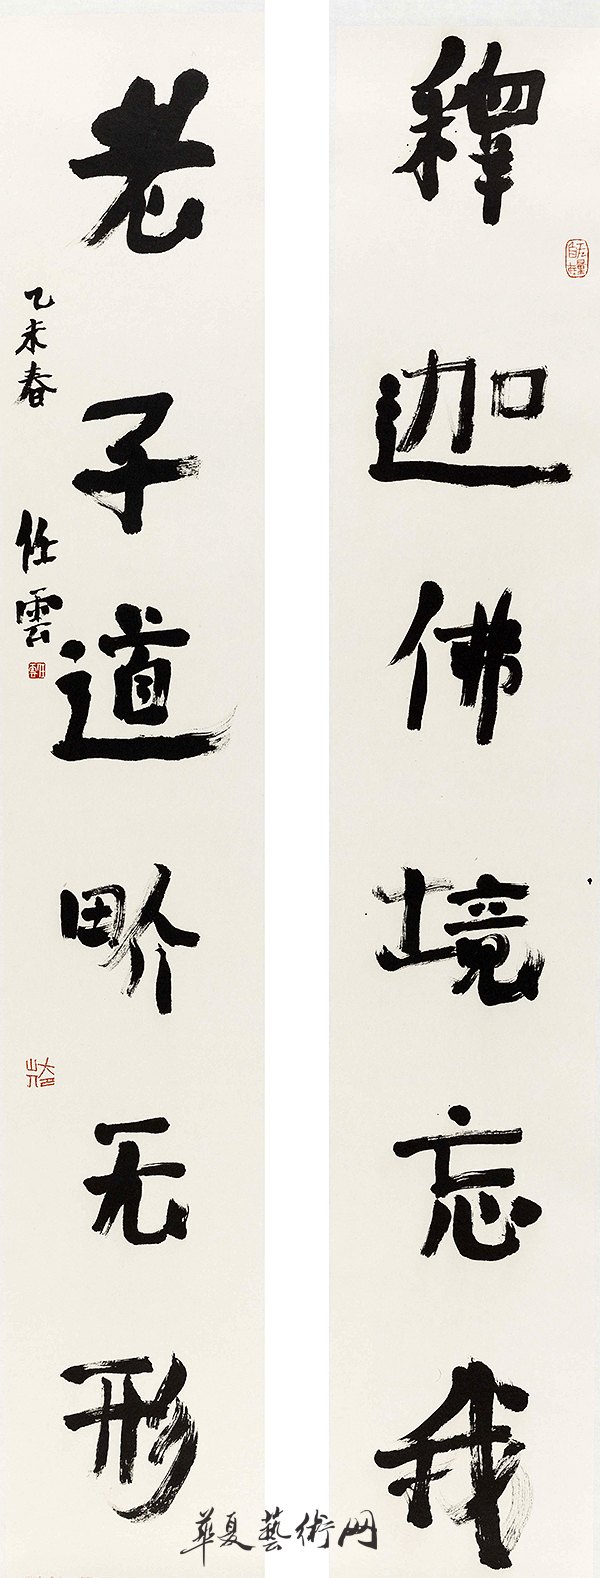 釋迦佛境忘我
老子道畍无形
乙未春
任雲
華夏藝術网